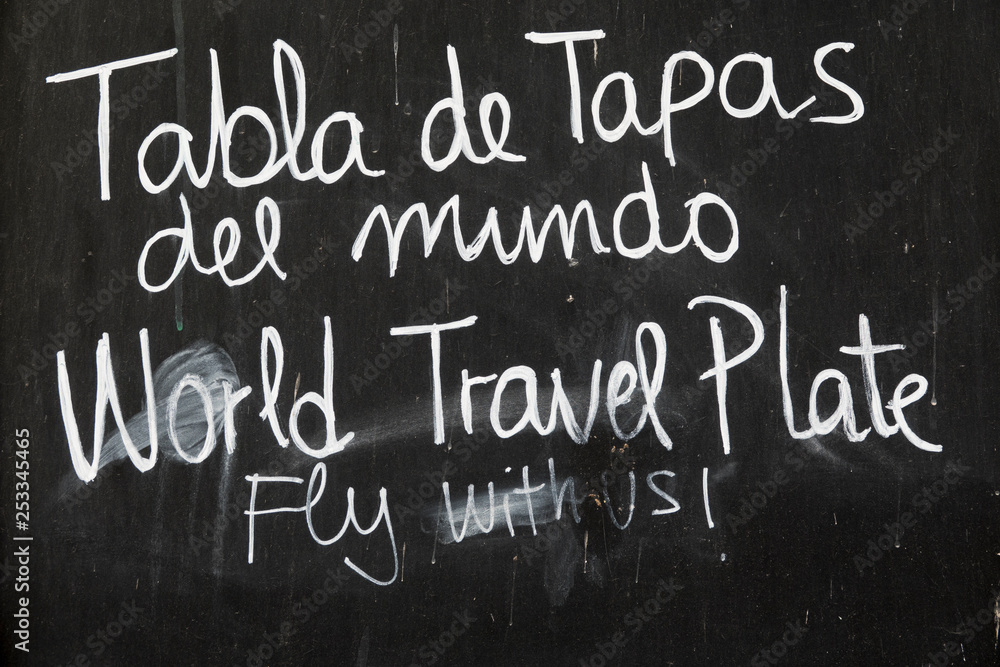 Tabla de Tapas
del mundo
World Travel Plate
Fly with us!
Adobe Stock | #253345465